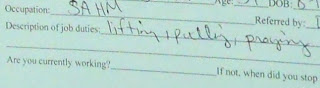 Age: DOB:
Occupation: SAHM
Referred by:
Description of job duties: lifting, pulling, praying
Are you currently working? If not, when did you stop